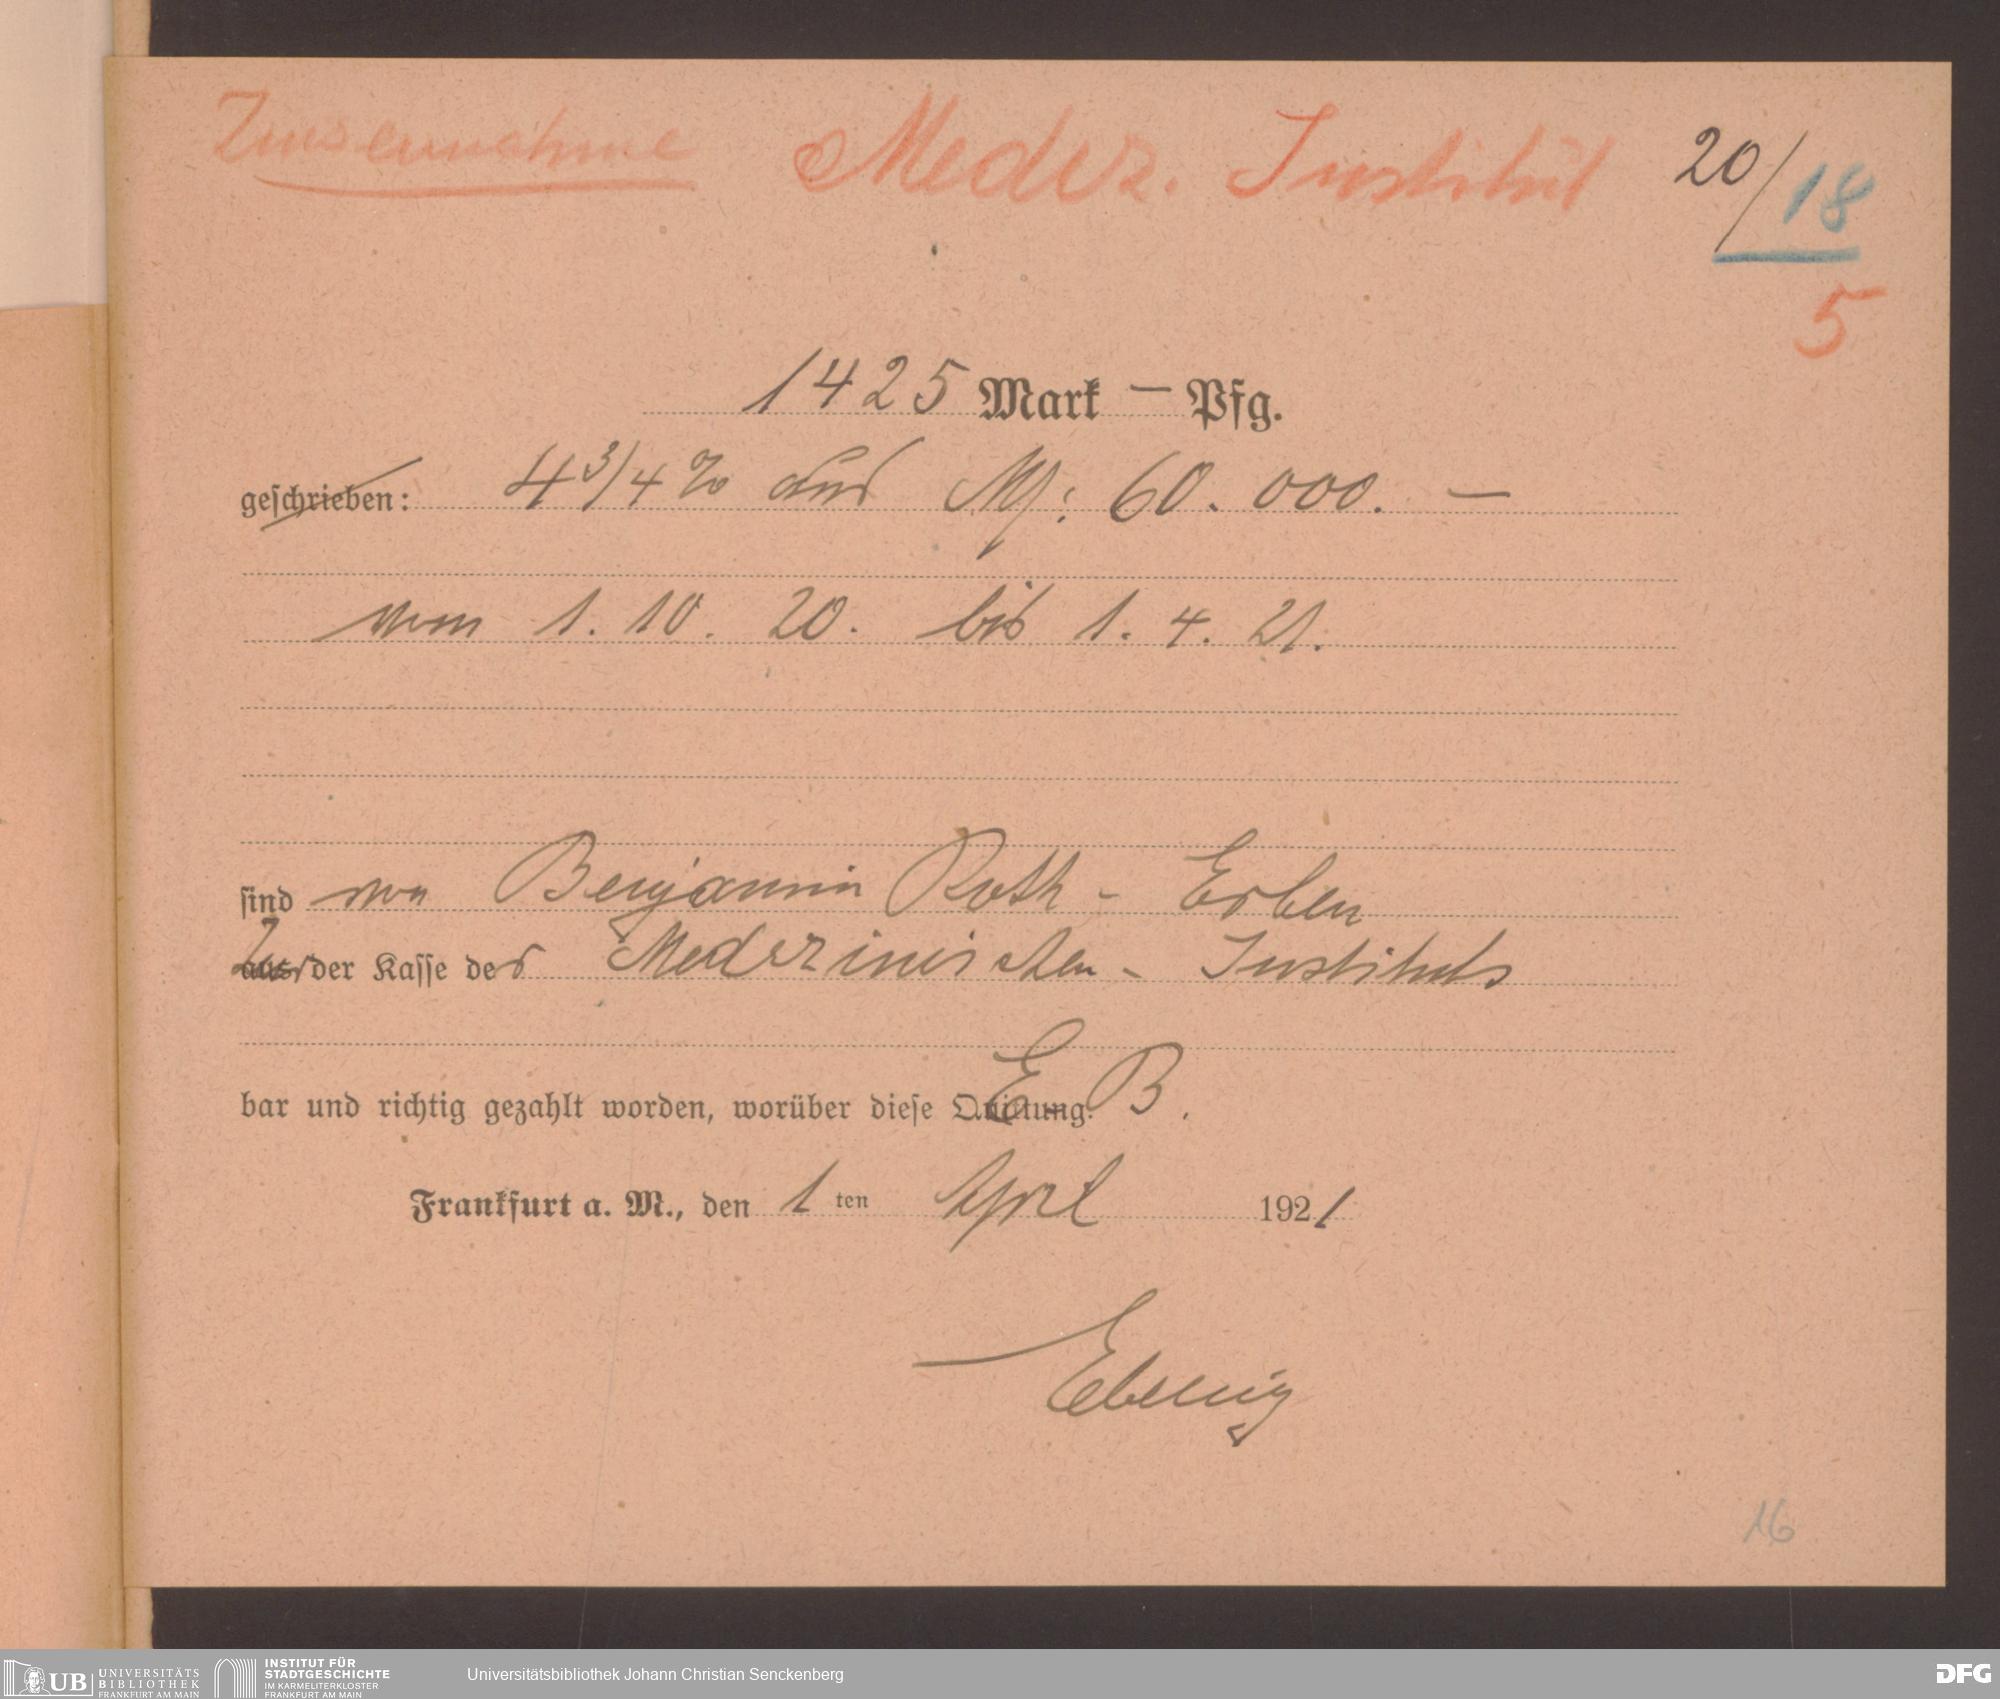 Zinseinnahme Mediz. Institut 20/18
5
1425 Mark — Pfg.
geschrieben: 4 3/4 % aus M: 60.000.—
vom 1. 10. 20. bis 1. 4. 21.
sind von Benjamin Roth - Erben
aus Zur der Kasse des Medizinischen - Instituts
bar und richtig gezahlt worden, worüber diese Quittung. E. B.
Frankfurt a. M., den 1 ten April 1921
16
UB UNIVERSITÄTS BIBLIOTHEK FRANKFURT AM MAIN
INSTITUT FÜR STADTGESCHICHTE IM KARMELITERKLOSTER FRANKFURT AM MAIN
Universitätsbibliothek Johann Christian Senckenberg
DFG